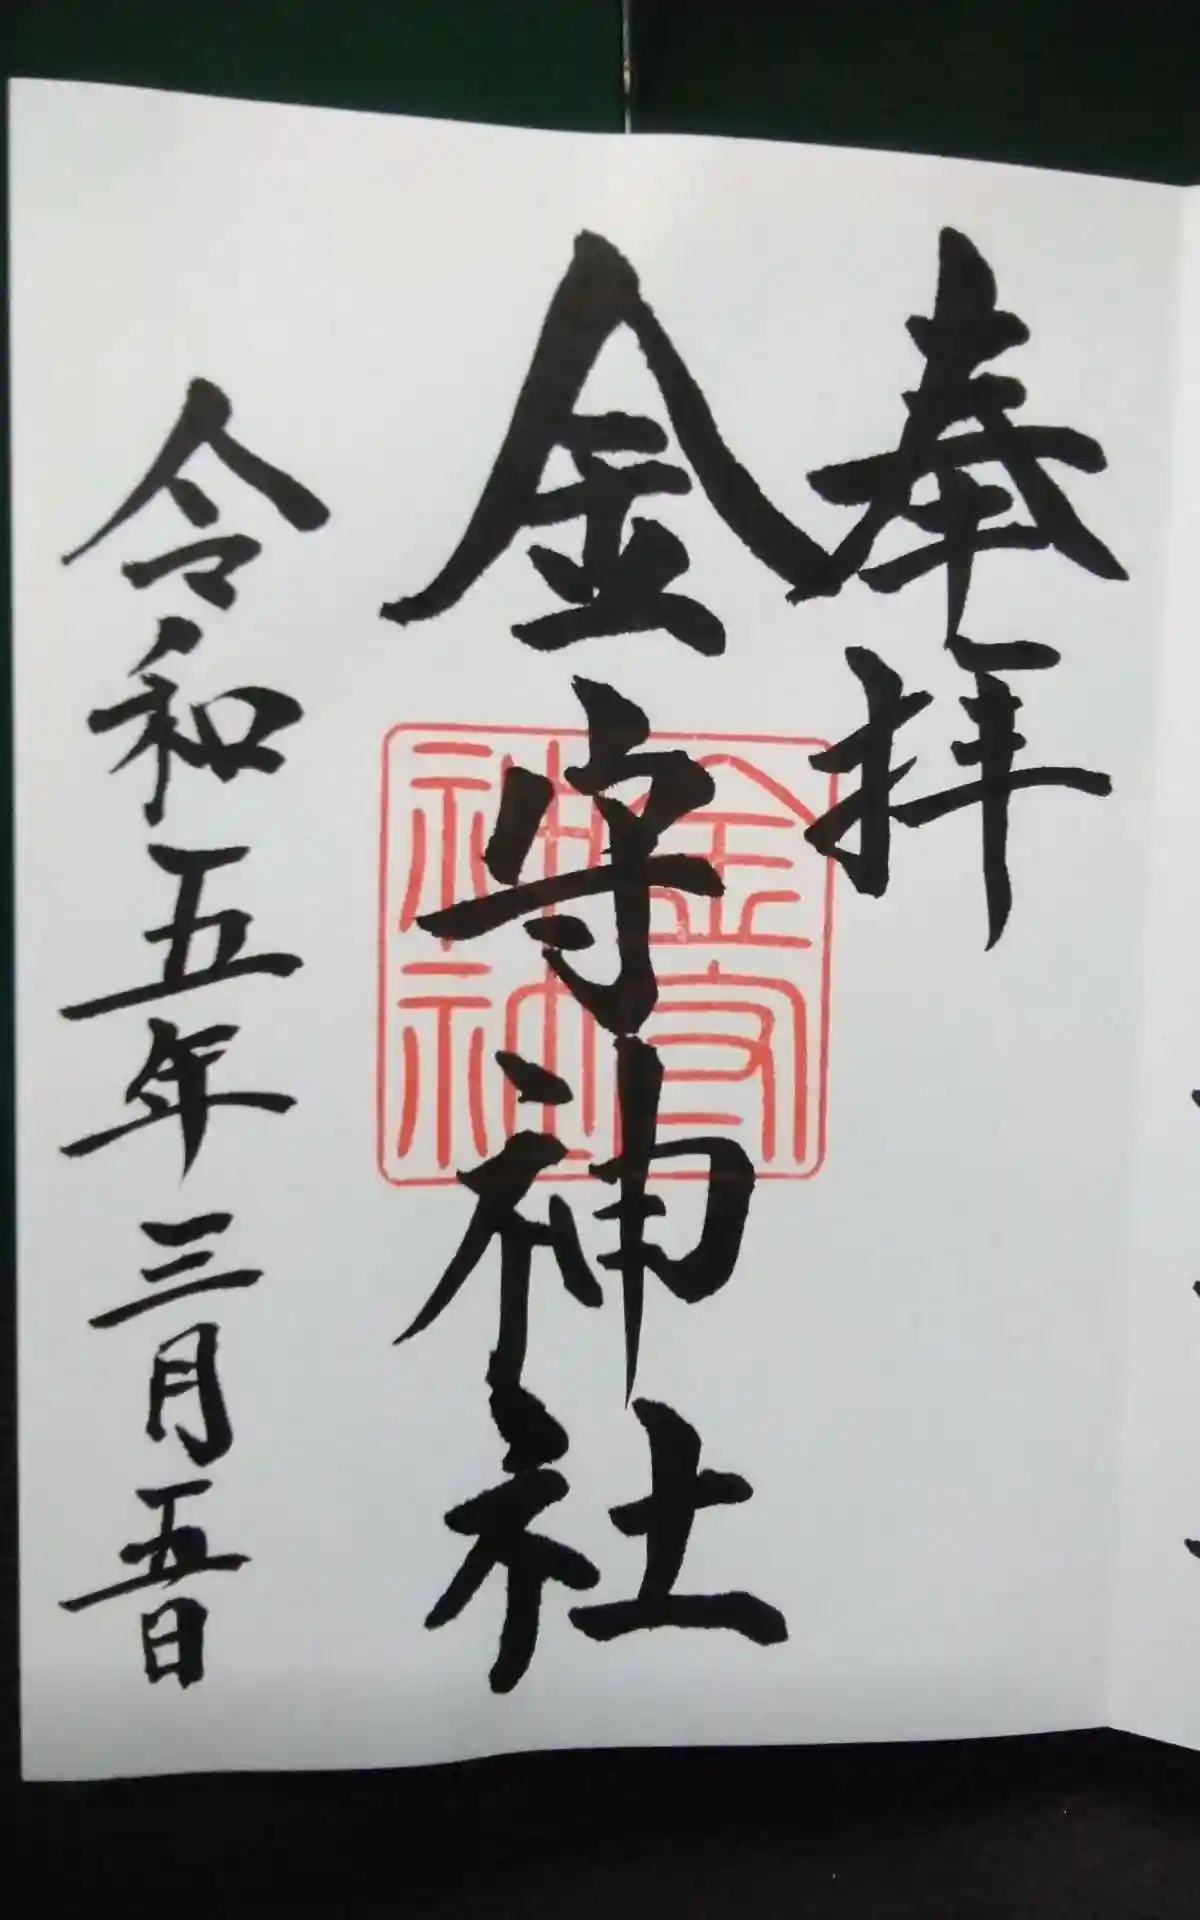 奉拝
金守神社
金守
神神
令和五年三月五日